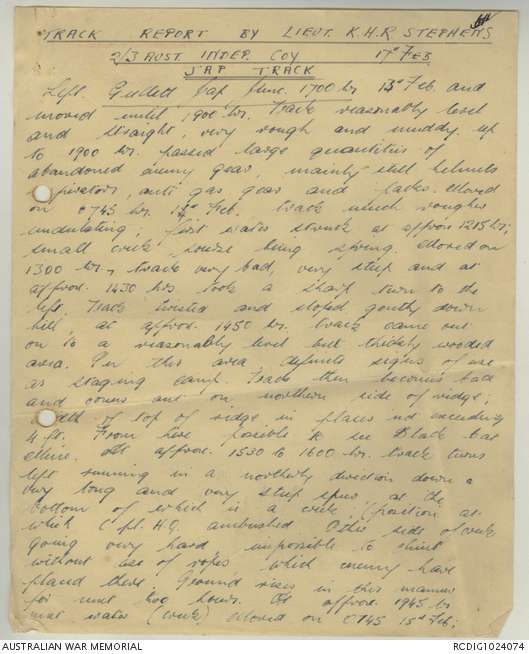 TRACK REPORT BY LIEUT. K.H.R STEPHENS
2/3 AUST. INDEP. COY 17th FEB
JAP TRACK
Left Gap June. 1700 hr 13th Feb. and
moved until 1900 hr. Track reasonably level
and straight, very rough and muddy up
to 1900 hr. passed large quantities of
abandoned enemy gear, mainly steel helmets
anti gas gear and packs. Moved
on 0745 hr. Feb. track much rougher
undulating; first water struck at approx 1215 hr;
small creek source being spring. Moved on
1300 hr, track very bad, very steep and at
approx. 1430 hrs took a sharp turn to the
left. Track twisted and sloped gently down
hill, at approx. 1450 hr. track came out
on to a reasonably level but thickly wooded
area. In this area definite signs of use
as staging camp. Track then becomes bad
and comes out on northern side of ridge;
width of top of ridge in places not exceeding
4 ft. From here possible to see Black Cat
Mine. At approx. 1530 to 1600 hr. track turns
left running in a northerly direction down a
very long and very steep spur at the
bottom of which is a creek, (position at
which C pl. H.Q. ambushed Other side of creek
going very hard impossible to climb
without use of ropes which enemy have
placed there. Ground rises in this manner
for next hours. At approx. 1945 hr
met water (creek) Moved on 0745 15th Feb;
AUSTRALIAN WAR MEMORIAL RCDIG1024074